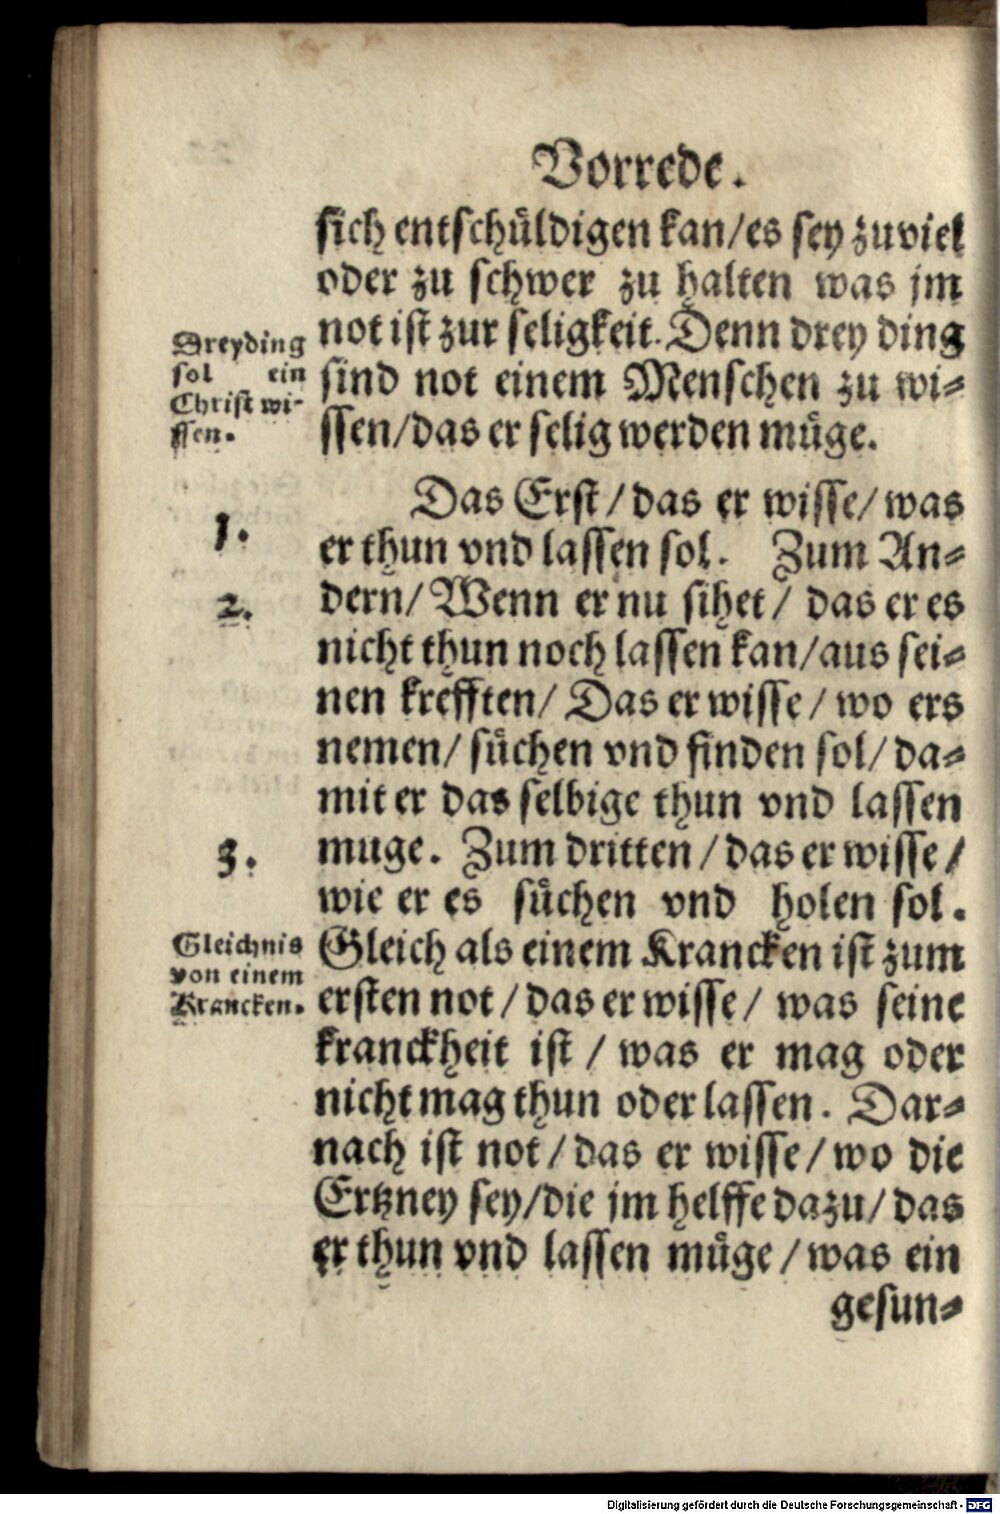 Vorrede.
sich entschüldigen kan/es sey zuviel
oder zu schwer zu halten was jm
not ist zur seligkeit. Denn drey ding
sind not einem Menschen zu wi-
ssen/das er selig werden müge.
Dreyding
sol ein
Christ wi-
ssen.
Das Erst/das er wisse/was
1.
er thun vnd lassen sol. Zum An-
2.
dern/Wenn er nu sihet/das er es
nicht thun noch lassen kan/aus sei-
nen krefften/Das er wisse/wo ers
nemen/süchen vnd finden sol/da-
mit er das selbige thun vnd lassen
3.
muge. Zum dritten/das er wisse/
wie er es süchen vnd holen sol.
Gleichnis
von einem
Krancken.
Gleich als einem Krancken ist zum
ersten not/das er wisse/was seine
kranckheit ist/was er mag oder
nicht mag thun oder lassen. Dar-
nach ist not/das er wisse/wo die
Ertzney sey/die jm helffe dazu/das
er thun vnd lassen müge/was ein
gesun-
Digitalisierung gefördert durch die Deutsche Forschungsgemeinschaft - DFG